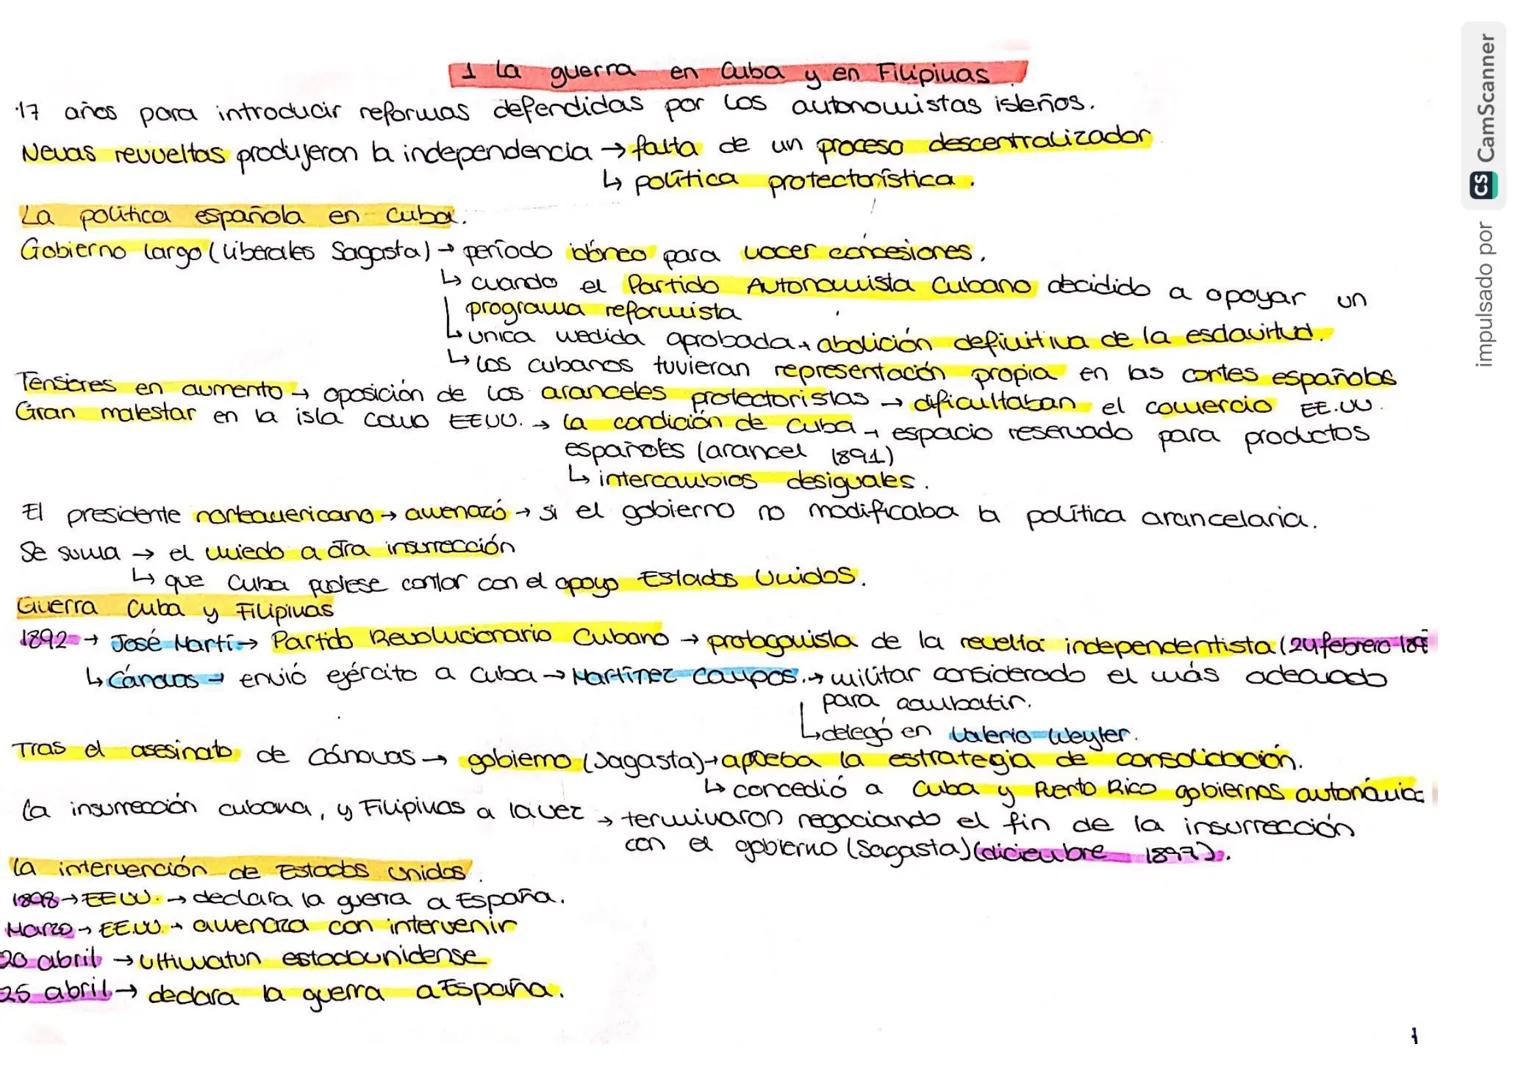 1 La guerra en Cuba y en Filipinas
·17 años para introducir reformas defendidas por los autonomistas isleños.
Nevas revueltas produjeron la independencia → falta de un proceso descentralizador
↳ política protectonística.
La política española en Cuba.
Gobierno largo (Liberales Sagasta) → período idóneo para hacer concesiones.
↳ cuando el Partido Autonomista Cubano decidido a apoyar un
programa reformista
↳ unica medida aprobada → abolición definitiva de la esclavitud.
↳ los cubanos tuvieran representación propia en las cortes españolas
Tensiones en aumento → oposición de los aranceles protectoristas → dificultaban el comercio EE.UU.
Gran malestar en la isla como EEUU. → la condición de Cuba → espacio reservado para productos
españoles (arancel 1891)
↳ intercambios desiguales.
El presidente norteamericano → amenazó → si el gobierno no modificaba la política arancelaria.
Se suma → el miedo a otra insurrección
↳ que Cuba pudiese contar con el apoyo Estados Unidos.
Guerra Cuba y Filipinas
1892 → José Martí → Partido Revolucionario Cubano → protagonista de la revelta independentista (24 febrero
↳ Cánovas → envió ejército a Cuba → Martínez Campos. → militar considerado el más adecuado
para combatir.
↳ delegó en Valerio Weyler.
Tras el asesinato de Cánovas → gobierno (Sagasta) → aprueba la estrategia de consolidación.
↳ concedió a Cuba y Puerto Rico gobiernos autonómic
La insurrección cubana, y Filipinas a la vez → terminaron negociando el fin de la insurrección
con el gobierno (Sagasta) (diciembre 1897).
La intervención de Estados Unidos.
1898 → EEUU. → declara la guerra a España.
Marzo → EE.UU. → amenaza con intervenir
20 abril → ultimatun estadounidense
25 abril → declara la guerra a España.
1
impulsado por CS CamScanner